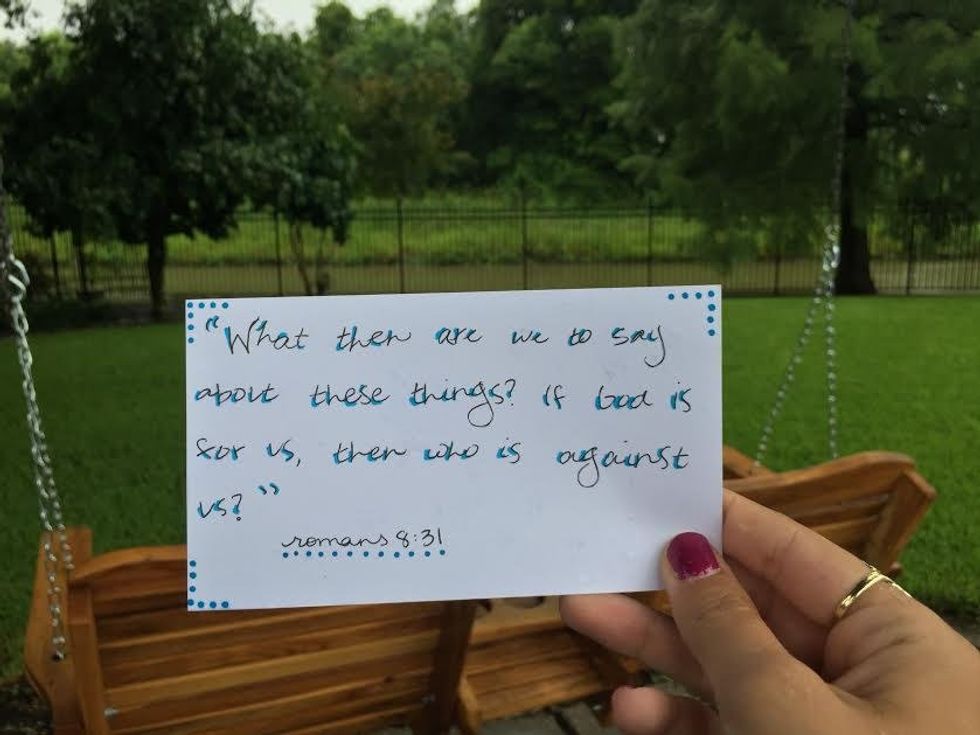 "What then are we to say
about these things? if God is
for us, then who is against
us?"
romans 8:31